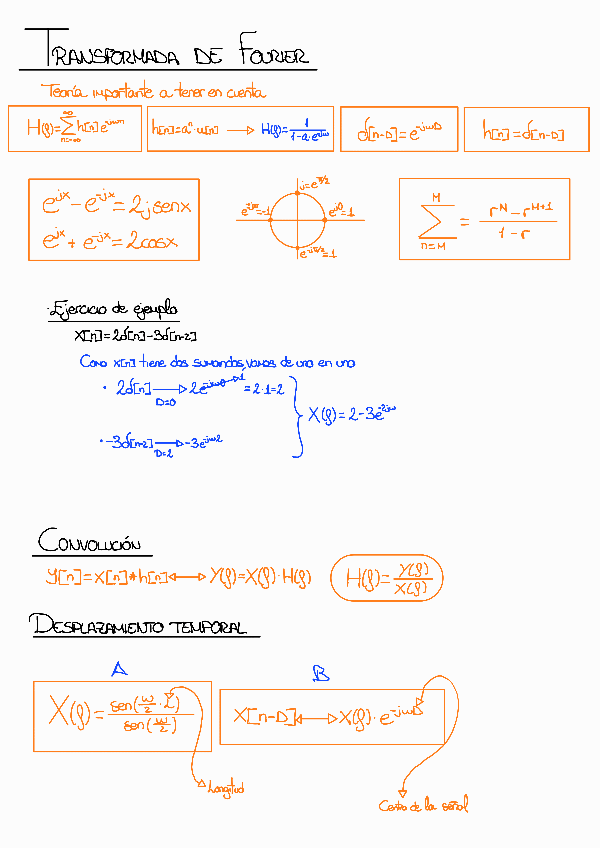 TRANSFORMADA DE FOURIER
Teoría importante a tener en cuenta
H(f)=∑_{n=-∞}^{∞} h[n] e^{-jωn}
h[n]=a^n·u[n] → H(f)=1/(1-a·e^{-jω})
δ[n-D]=e^{-jωD}
h[n]=δ[n-D]
e^{jx}-e^{-jx}=2jsenx
e^{jx}+e^{-jx}=2cosx
j=e^{jπ/2}
e^{-jπ}=-1
e^{j0}=1
e^{-jπ/2}=1
∑_{n=M}^{M} = (r^N-r^{M+1})/(1-r)
Ejercicio de ejemplo
X[n]=2δ[n]-3δ[n-2]
Como x[n] tiene dos sumandos, vamos de uno en uno
· 2δ[n] → D=0 2e^{-jω0}→1 =2·1=2
X(f)=2-3e^{-2jω}
· -3δ[n-2] → D=2 -3e^{-jω2}
CONVOLUCIÓN
Y[n]=x[n]*h[n] ↔ Y(f)=X(f)·H(f)
H(f)=Y(f)/X(f)
DESPLAZAMIENTO TEMPORAL
A
B
X(f)=sen(ω/2·L)/sen(ω/2)
X[n-D] ↔ X(f)·e^{-jωD}
Longitud
Centro de la señal